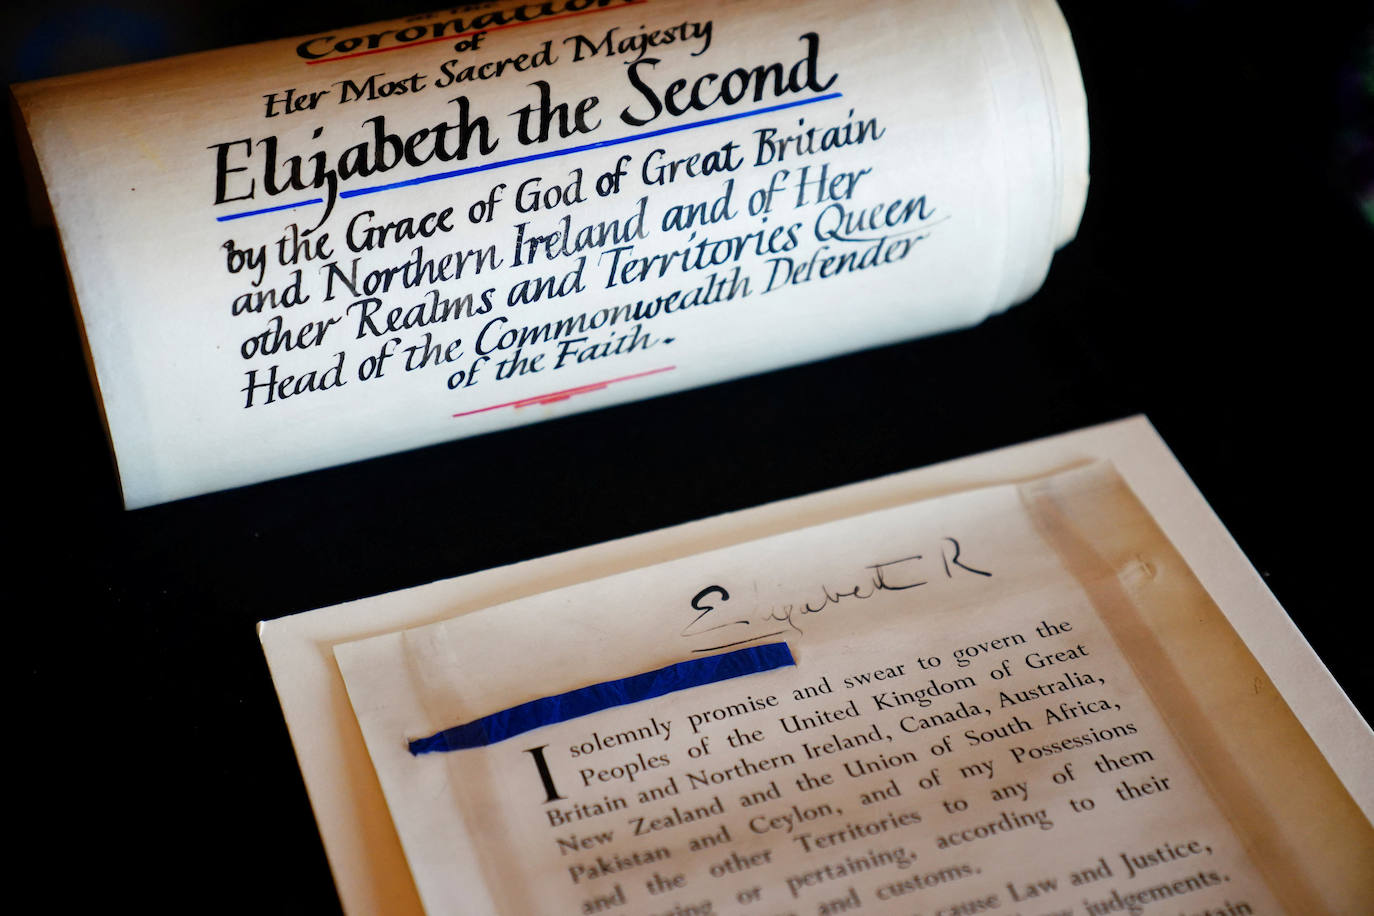 of the
Coronation
of
Her Most Sacred Majesty
Elizabeth the Second
by the Grace of God of Great Britain
and Northern Ireland and of Her
other Realms and Territories Queen
Head of the Commonwealth Defender
of the Faith.
Elizabeth R
I solemnly promise and swear to govern the
Peoples of the United Kingdom of Great
Britain and Northern Ireland, Canada, Australia,
New Zealand and the Union of South Africa,
Pakistan and Ceylon, and of my Possessions
and the other Territories to any of them
or pertaining, according to their
and customs.
cause Law and Justice,
judgements.